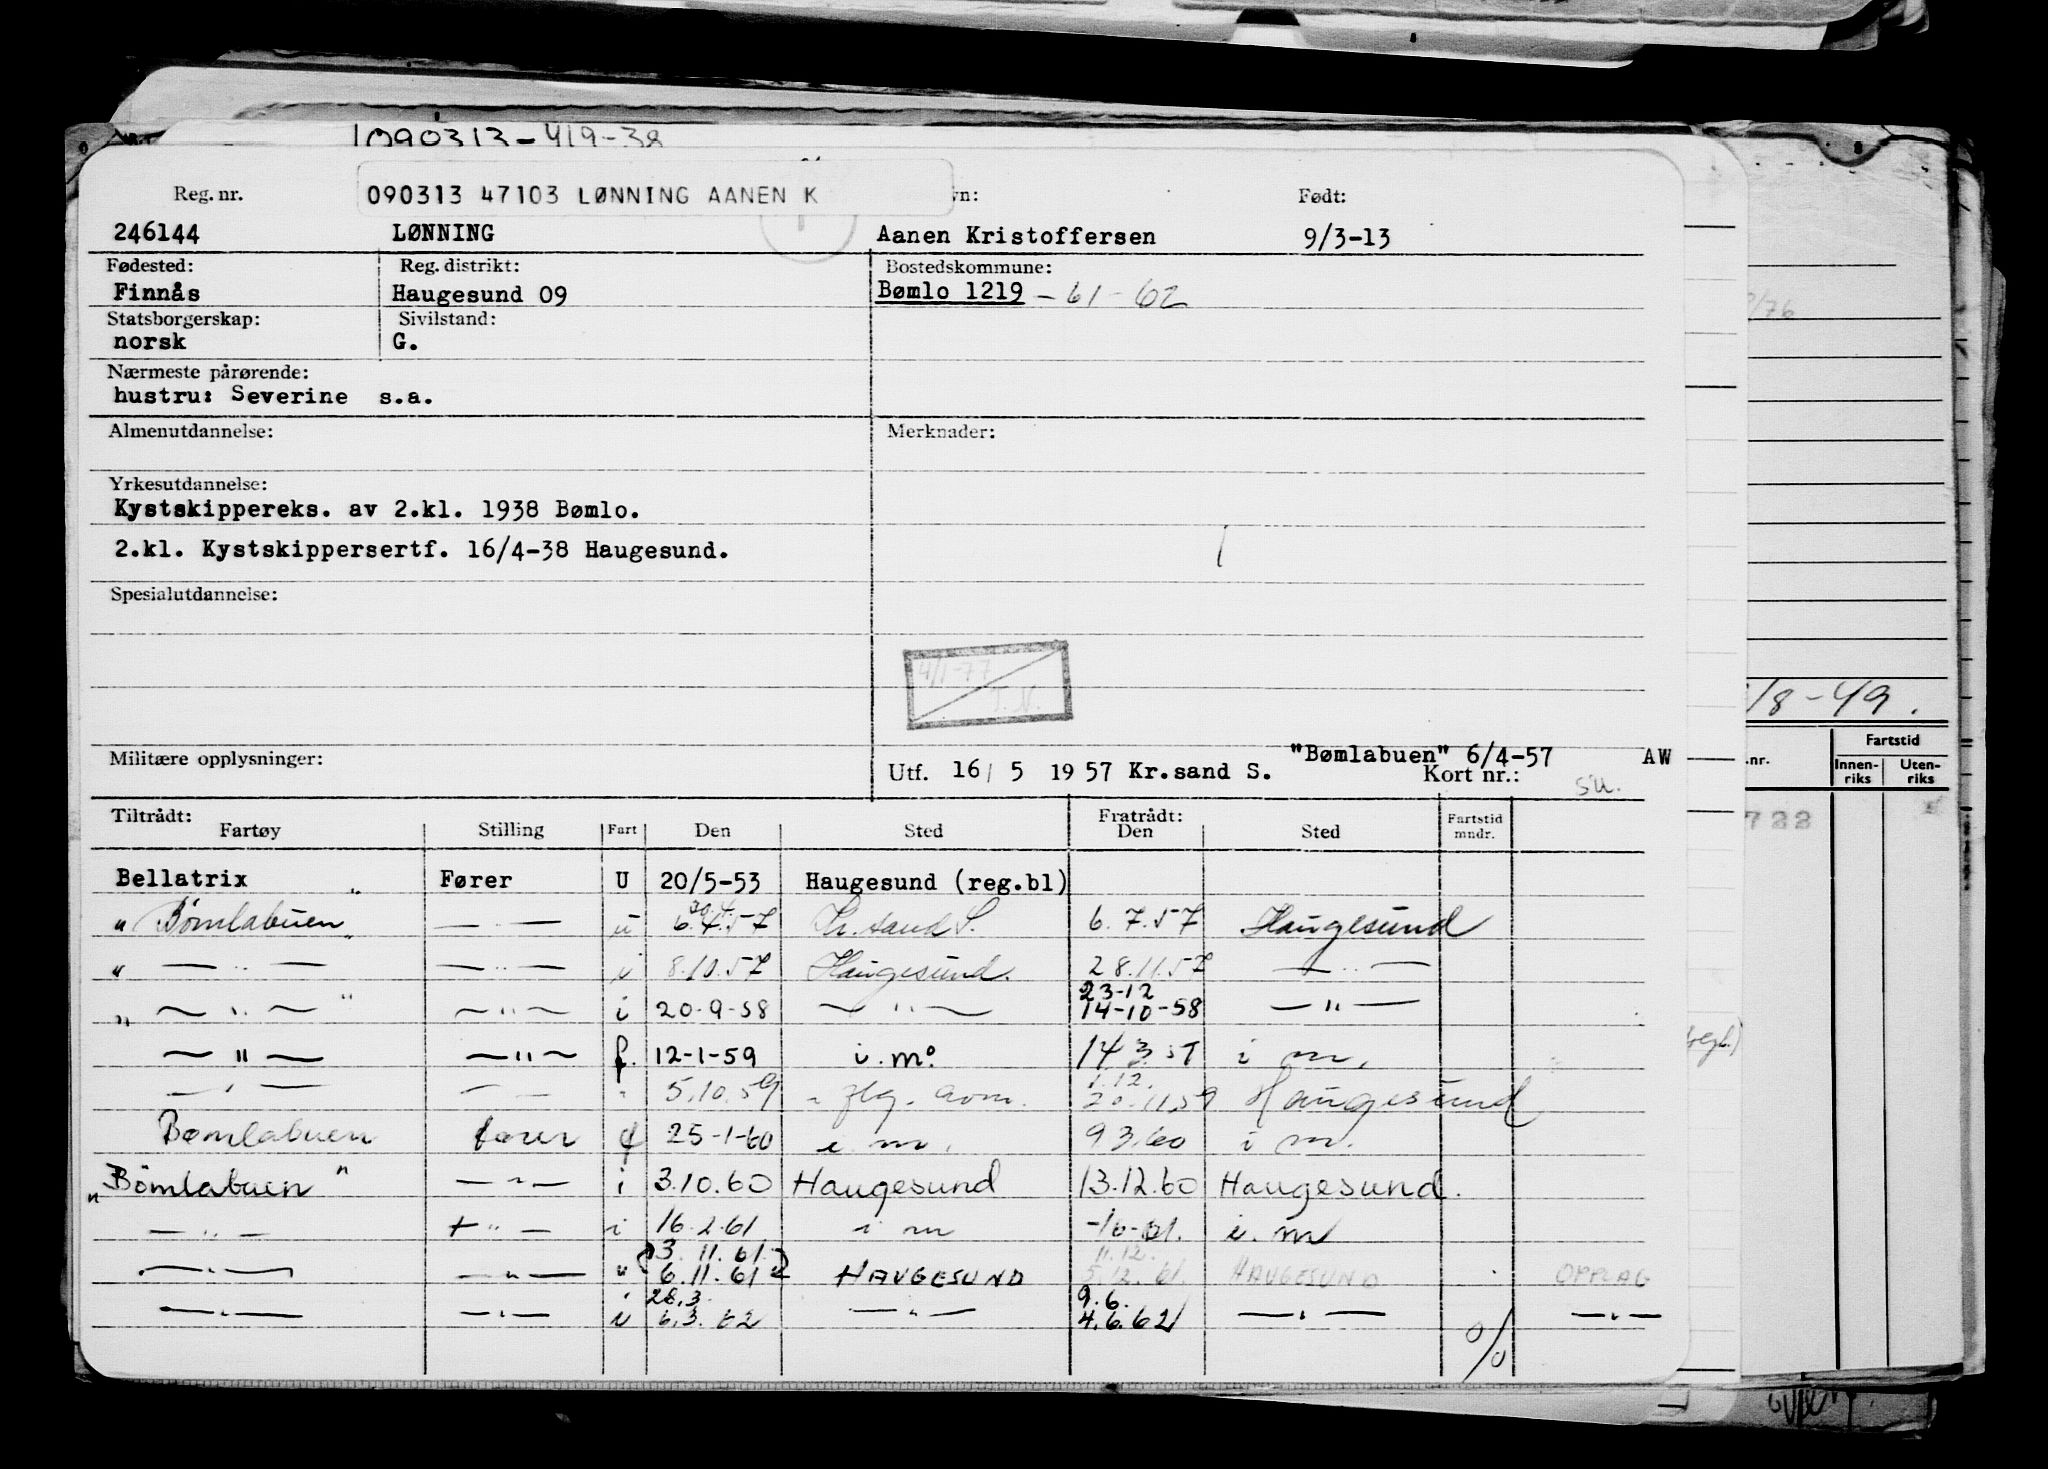 1090313-419-38
Reg. nr. 090313 47103 LØNNING AANEN K vn: Født:
246144 LØNNING Aanen Kristoffersen 9/3-13
Fødested: Reg. distrikt: Bostedskommune:
Finnås Haugesund 09 Bømlo 1219 - 61 - 62
Statsborgerskap: Sivilstand:
norsk G.
Nærmeste pårørende:
hustru: Severine s.a.
Almenutdannelse: Merknader:
Yrkesutdannelse:
Kystskippereks. av 2.kl. 1938 Bømlo.
2.kl. Kystskippersertf. 16/4-38 Haugesund.
Spesialutdannelse:
4/1-77
T.N.
Militære opplysninger: "Bømlabuen" 6/4-57 AW
Utf. 16/ 5 1957 Kr.sand S. Kort nr.:
su.
Tiltrådt: Fratrådt: Fartstid
Fartøy Stilling Fart Den Sted Den Sted mndr.
Bellatrix Fører U 20/5-53 Haugesund (reg.bl)
" Bömlabuen " — " — u 6.4.57 Kr. sand S. 6.7.57 Haugesund
" — " — — " — i 8.10.57 Haugesund. 28.11.57 — " —
23-12
" — " — " — " — i 20-9-58 — " — 14-10-58 — " —
— " — — " — f. 12-1-59 i. m. 14 3 i m.
1.12.
— " — — — " 5.10.59 20.11.59 Haugesund
Bømlabuen fører f 25-1-60 i m. 9 3.60 i m.
"Bömlabuen" — " — i 3.10.60 Haugesund 13.12.60 Haugesund.
— " — — " — i 16.2.61 i m i. m
3.11.61 11.12.
— " — — " — " 6.11.61 HAUGESUND 5.12.61. HAUGESUND OPPLAG
28.3. 9.6.
— " — — " — i 6.3.62 — " — 4.6.62 — " — — " —
%
/76
/8-49.
.nr. Fartstid
Innen-riks Uten-riks
722